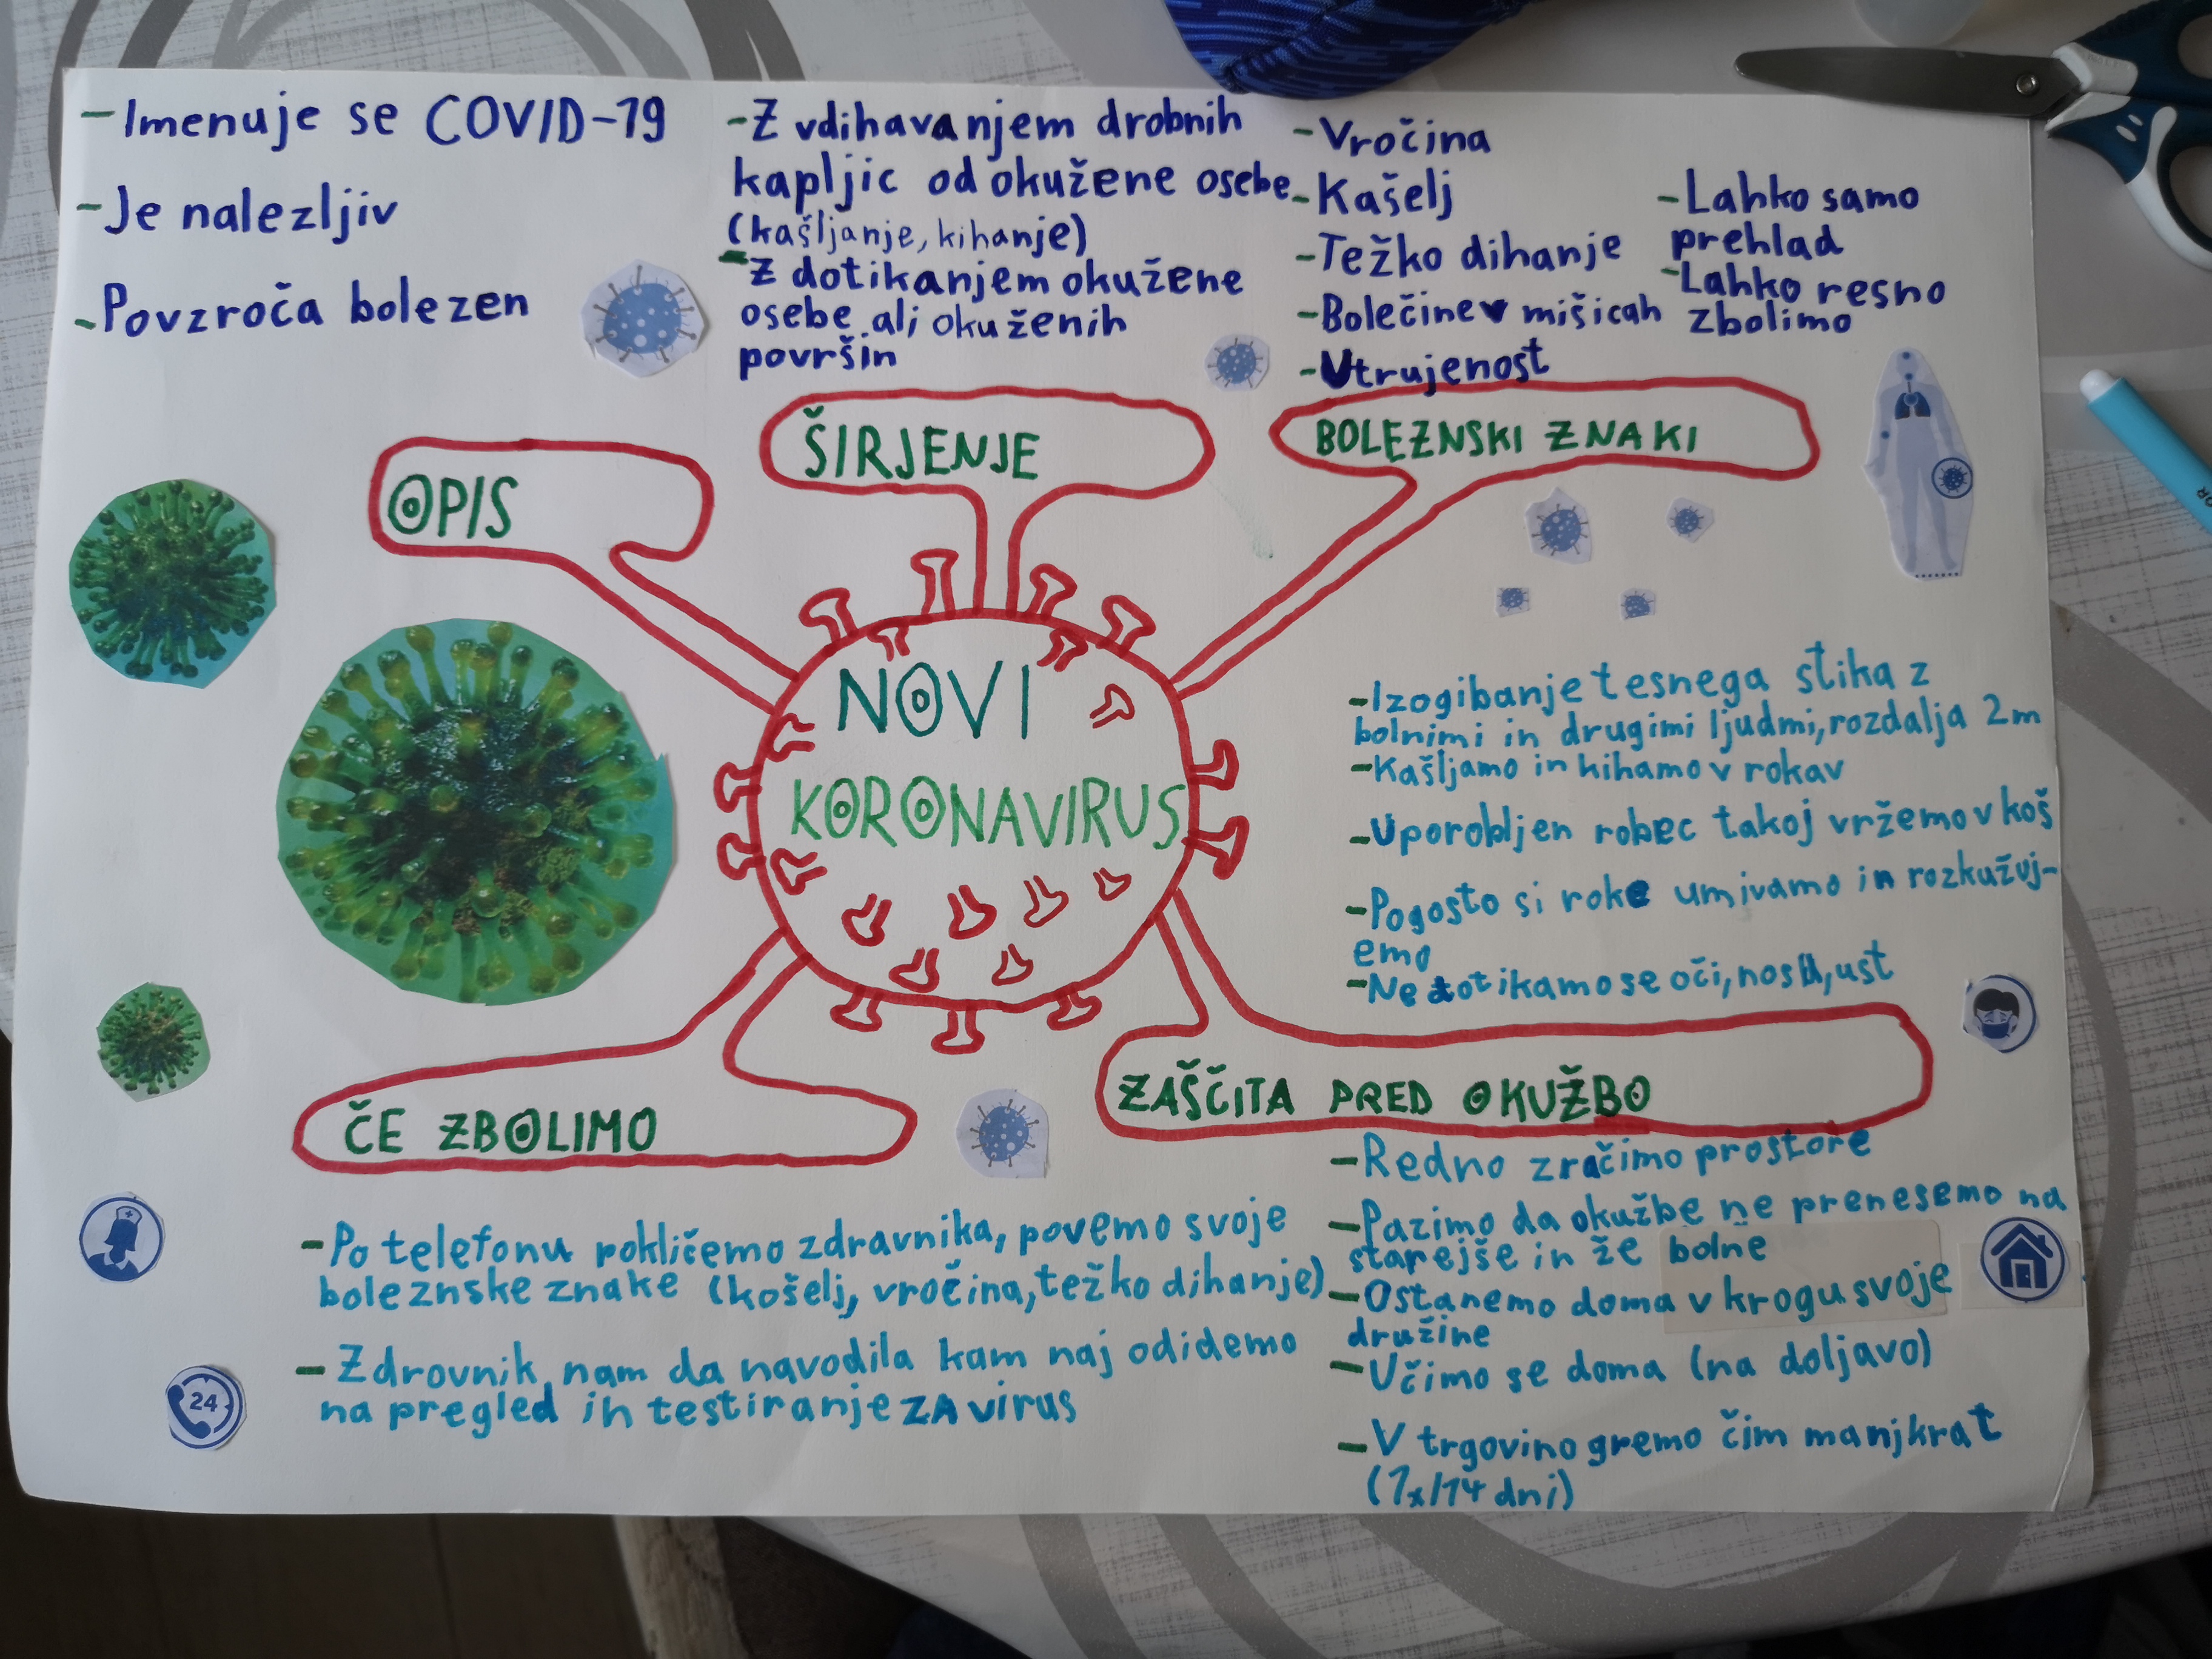 -Imenuje se COVID-19
-Je nalezljiv
-Povzroča bolezen
OPIS
-Z vdihavanjem drobnih
kapljic od okužene osebe
(kašljanje, kihanje)
-Z dotikanjem okužene
osebe ali okuženih
površin
ŠIRJENJE
-Vročina
-Kašelj
-Težko dihanje
-Bolečine v mišicah
-Utrujenost
-Lahko samo
prehlad
-Lahko resno
zbolimo
BOLEZNSKI ZNAKI
NOVI
KORONAVIRUS
-Izogibanje tesnega stika z
bolnimi in drugimi ljudmi, rozdalja 2m
-Kašljamo in kihamo v rokav
-Uporobljen robec takoj vržemo v koš
-Pogosto si roke umivamo in rozkužuj-
emo
-Ne dotikamo se oči, nosu, ust
ZAŠČITA PRED OKUŽBO
-Redno zračimo prostore
-Pazimo da okužbe ne prenesemo na
starejše in že bolne
-Ostanemo doma v krogu svoje
družine
-Učimo se doma (na doljavo)
-V trgovino gremo čim manjkrat
(1x/14 dni)
ČE ZBOLIMO
-Po telefonu pokličemo zdravnika, povemo svoje
boleznske znake (košelj, vročina, težko dihanje)
-Zdrovnik nam da navodila kam naj odidemo
na pregled in testiranje ZA virus
24